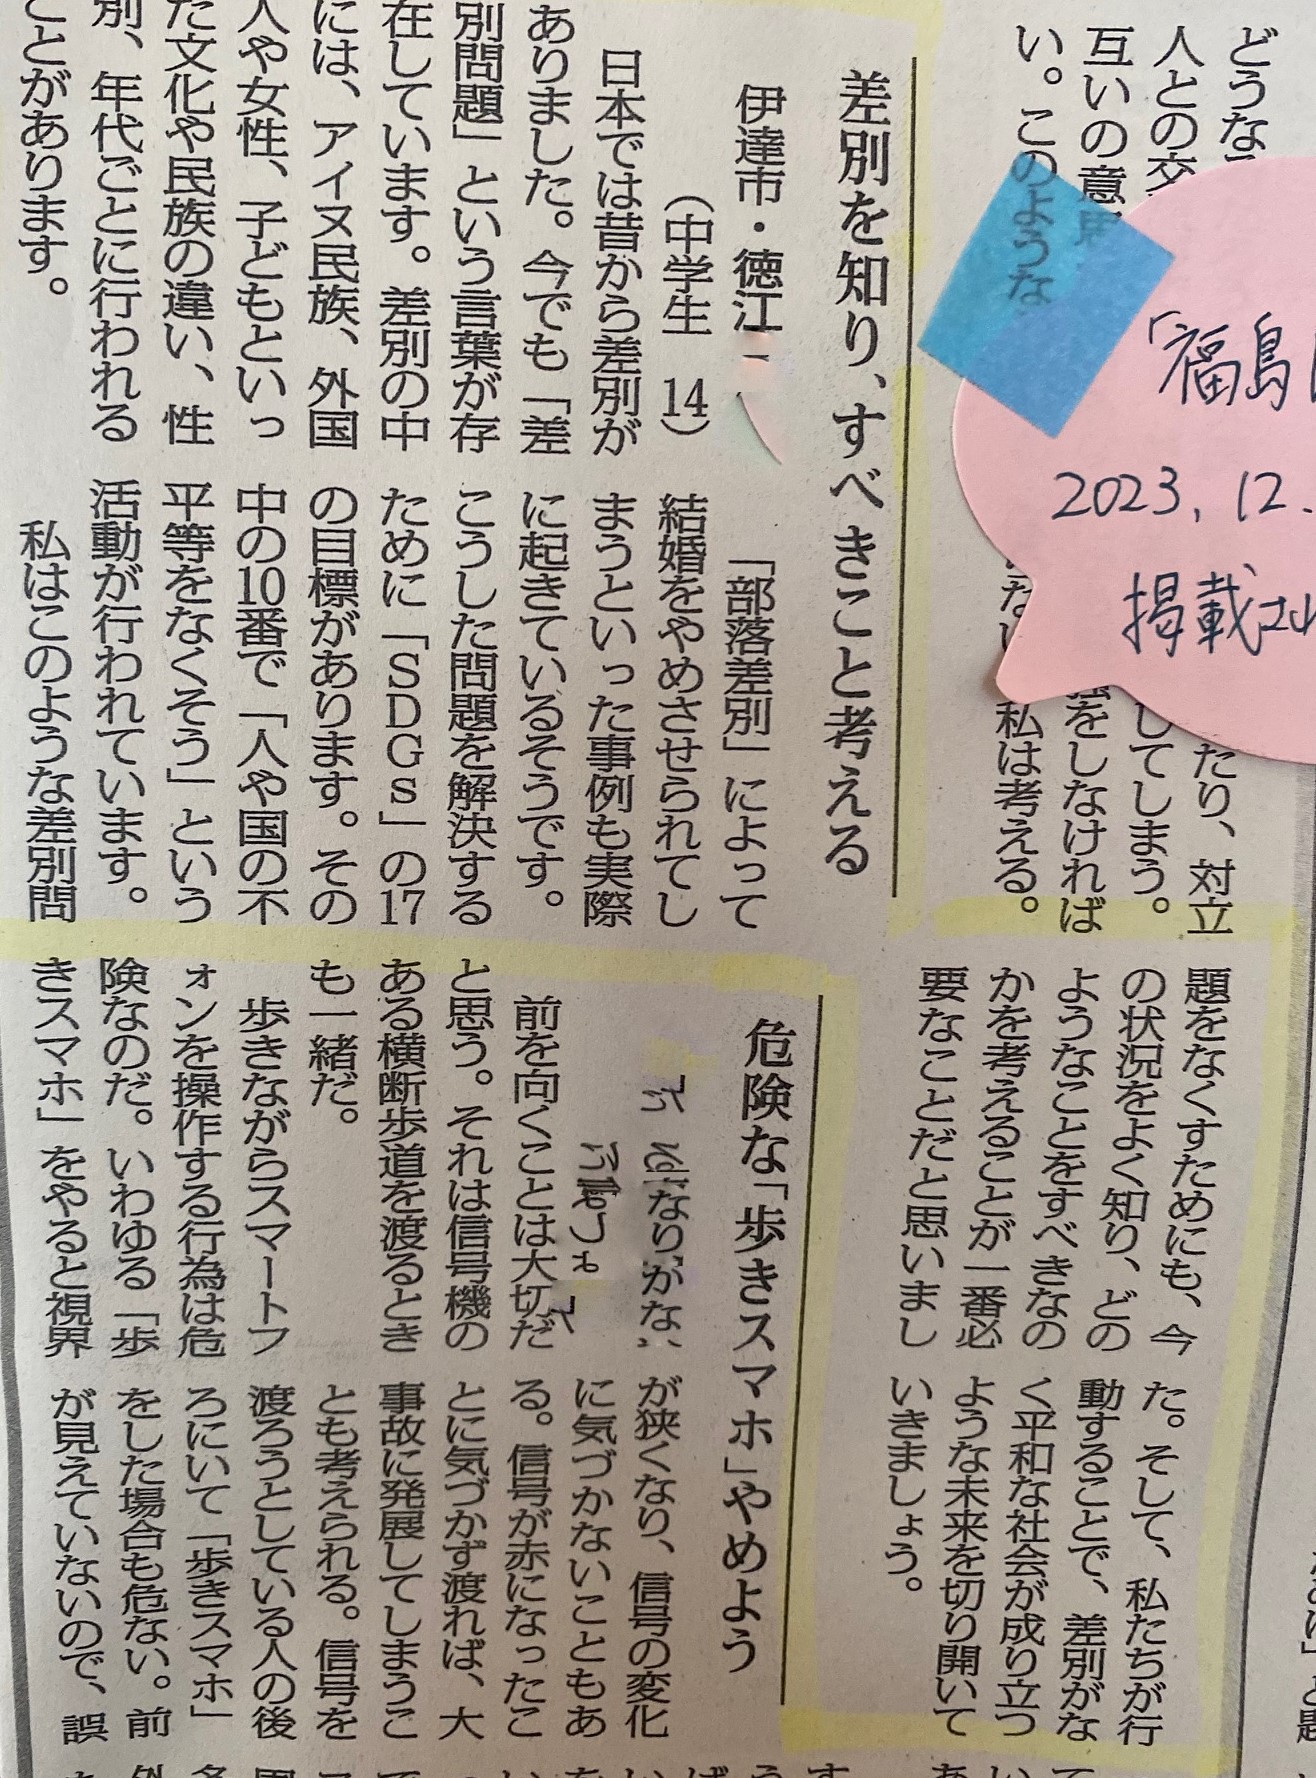 どうな
人との交
互いの意
い。このような
たり、対立
してしまう。
強をしなければ
私は考える。
「福島
2023.12.
掲載され
差別を知り、すべきこと考える
伊達市・徳江
(中学生 14)
日本では昔から差別が
ありました。今でも「差
別問題」という言葉が存
在しています。差別の中
には、アイヌ民族、外国
人や女性、子どもといっ
た文化や民族の違い、性
別、年代ごとに行われる
ことがあります。
「部落差別」によって
結婚をやめさせられてし
まうといった事例も実際
に起きているそうです。
こうした問題を解決する
ために「SDGs」の17
の目標があります。その
中の10番で「人や国の不
平等をなくそう」という
活動が行われています。
私はこのような差別問
題をなくすためにも、今
の状況をよく知り、どの
ようなことをすべきなの
かを考えることが一番必
要なことだと思いまし
た。そして、私たちが行
動することで、差別がな
く平和な社会が成り立つ
ような未来を切り開いて
いきましょう。
危険な「歩きスマホ」やめよう
前を向くことは大切だ
と思う。それは信号機の
ある横断歩道を渡るとき
も一緒だ。
歩きながらスマートフ
ォンを操作する行為は危
険なのだ。いわゆる「歩
きスマホ」をやると視界
が狭くなり、信号の変化
に気づかないこともあ
る。信号が赤になったこ
とに気づかず渡れば、大
事故に発展してしまうこ
とも考えられる。信号を
渡ろうとしている人の後
ろにいて「歩きスマホ」
をした場合も危ない。前
が見えていないので、誤